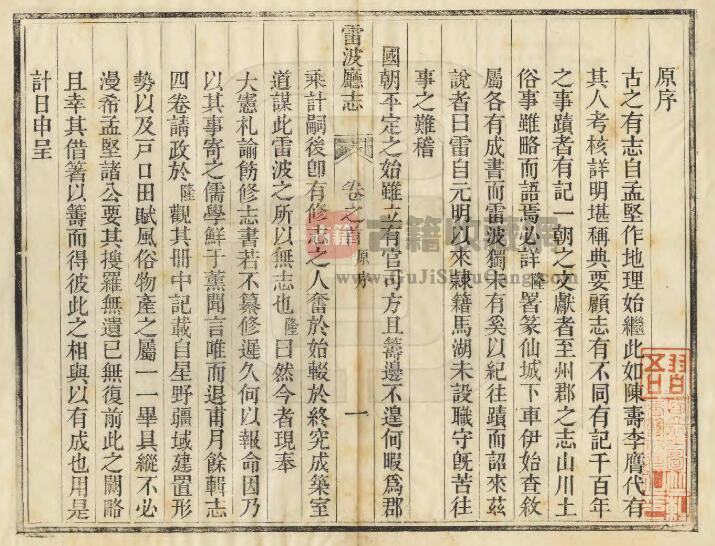 原序
古之有志自孟堅作地理始繼此如陳壽李膺代有
其人考核詳明堪稱典要顧志有不同有記千百年
之事蹟者有記一朝之文獻者至州郡之志山川土
俗事雖略而語焉必詳隆署篆仙城下車伊始查敘
屬各有成書而雷波獨未有奚以紀往蹟而詔來茲
說者曰雷自元明以來隷籍馬湖未設職守旣苦往
事之難稽
國朝平定之始雖立有官司方且籌邊不遑何暇爲郡
雷波廳志
卷之首 原序 一
乘計嗣後卽有修志之人奮於始輟於終究成築室
道謀此雷波之所以無志也隆曰然今者現奉
大憲札諭飭修志書若不纂修遲久何以報命因乃
以其事寄之儒學鮮于薰聞言唯而退甫月餘輯志
四卷請政於隆觀其冊中記載自星野疆域建置形
勢以及戸口田賦風俗物產之屬一一畢具縱不必
漫希孟堅諸公要其搜羅無遺已無復前此之闕略
且幸其借箸以籌而得彼此之相與以有成也用是
計日申呈
古籍
www.GuJiShuCang.com